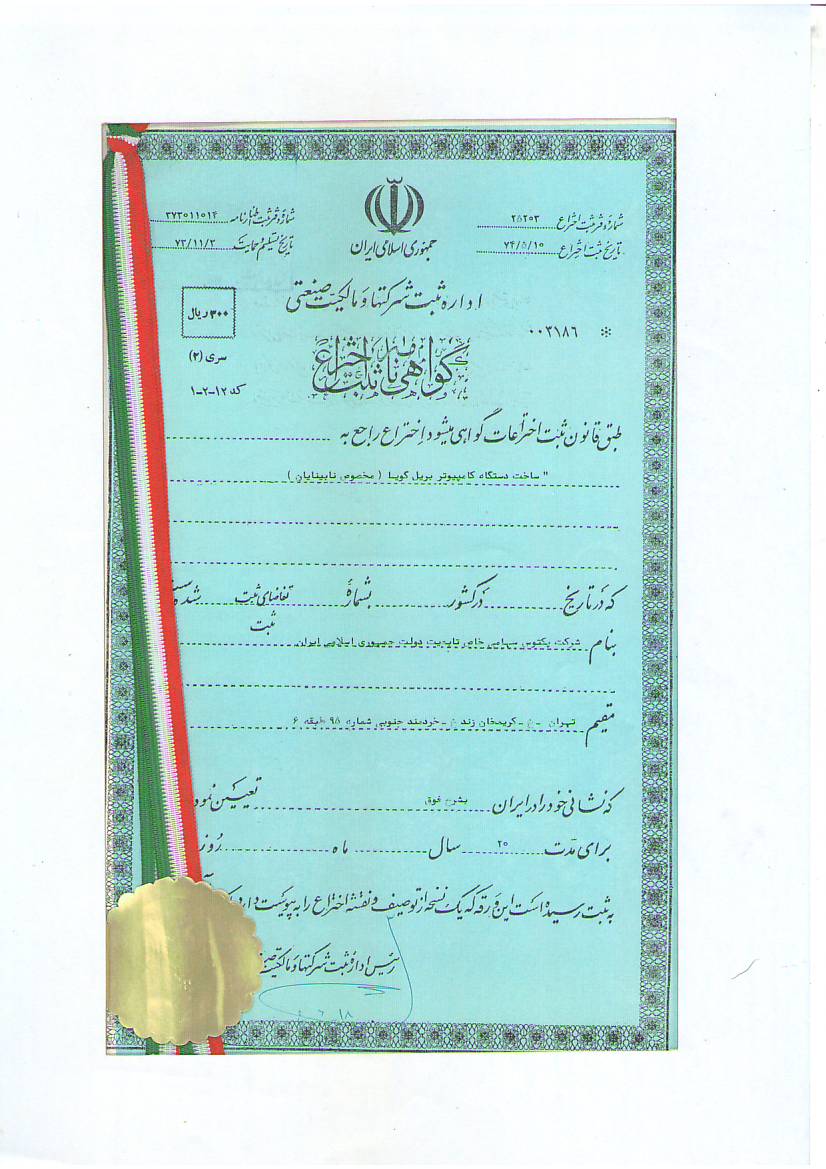 جمهوری اسلامی ایران
شماره ثبت اختراع ۲۵۲۰۳
تاریخ ثبت اختراع ۷۴/۵/۱۰
شماره ثبت اظهارنامه ۳۷۳۰۱۱۰۱۴
تاریخ تسلیم و حمایت ۷۳/۱۱/۲
اداره ثبت شرکتها و مالکیت صنعتی
۳۰۰ ریال
۰۰۲۱۸۶ *
سری (۲)
گواهی نامه ثبت اختراع
کد ۱۲-۲-۱
طبق قانون ثبت اختراعات گواهی میشود اختراع راجع به
" ساخت دستگاه کامپیوتر بریل گویا ( مخصوص نابینایان )
که در تاریخ در کشور بشماره تقاضای ثبت شده
ثبت
بنام شرکت پکتوس سهامی خاص تابعیت دولت جمهوری اسلامی ایران
مقیم تهران - خ - کریمخان زند خ - خردمند جنوبی شماره ۹۵ طبقه ۶
که نشانی خود را در ایران بشرح فوق تعیین نمود
برای مدت ۲۰ سال ماه روز
به ثبت رسیده است این ورقه که یک نسخه از توصیف و نقشه اختراع را به پیوست دارد
رئیس اداره ثبت شرکتها و مالکیت